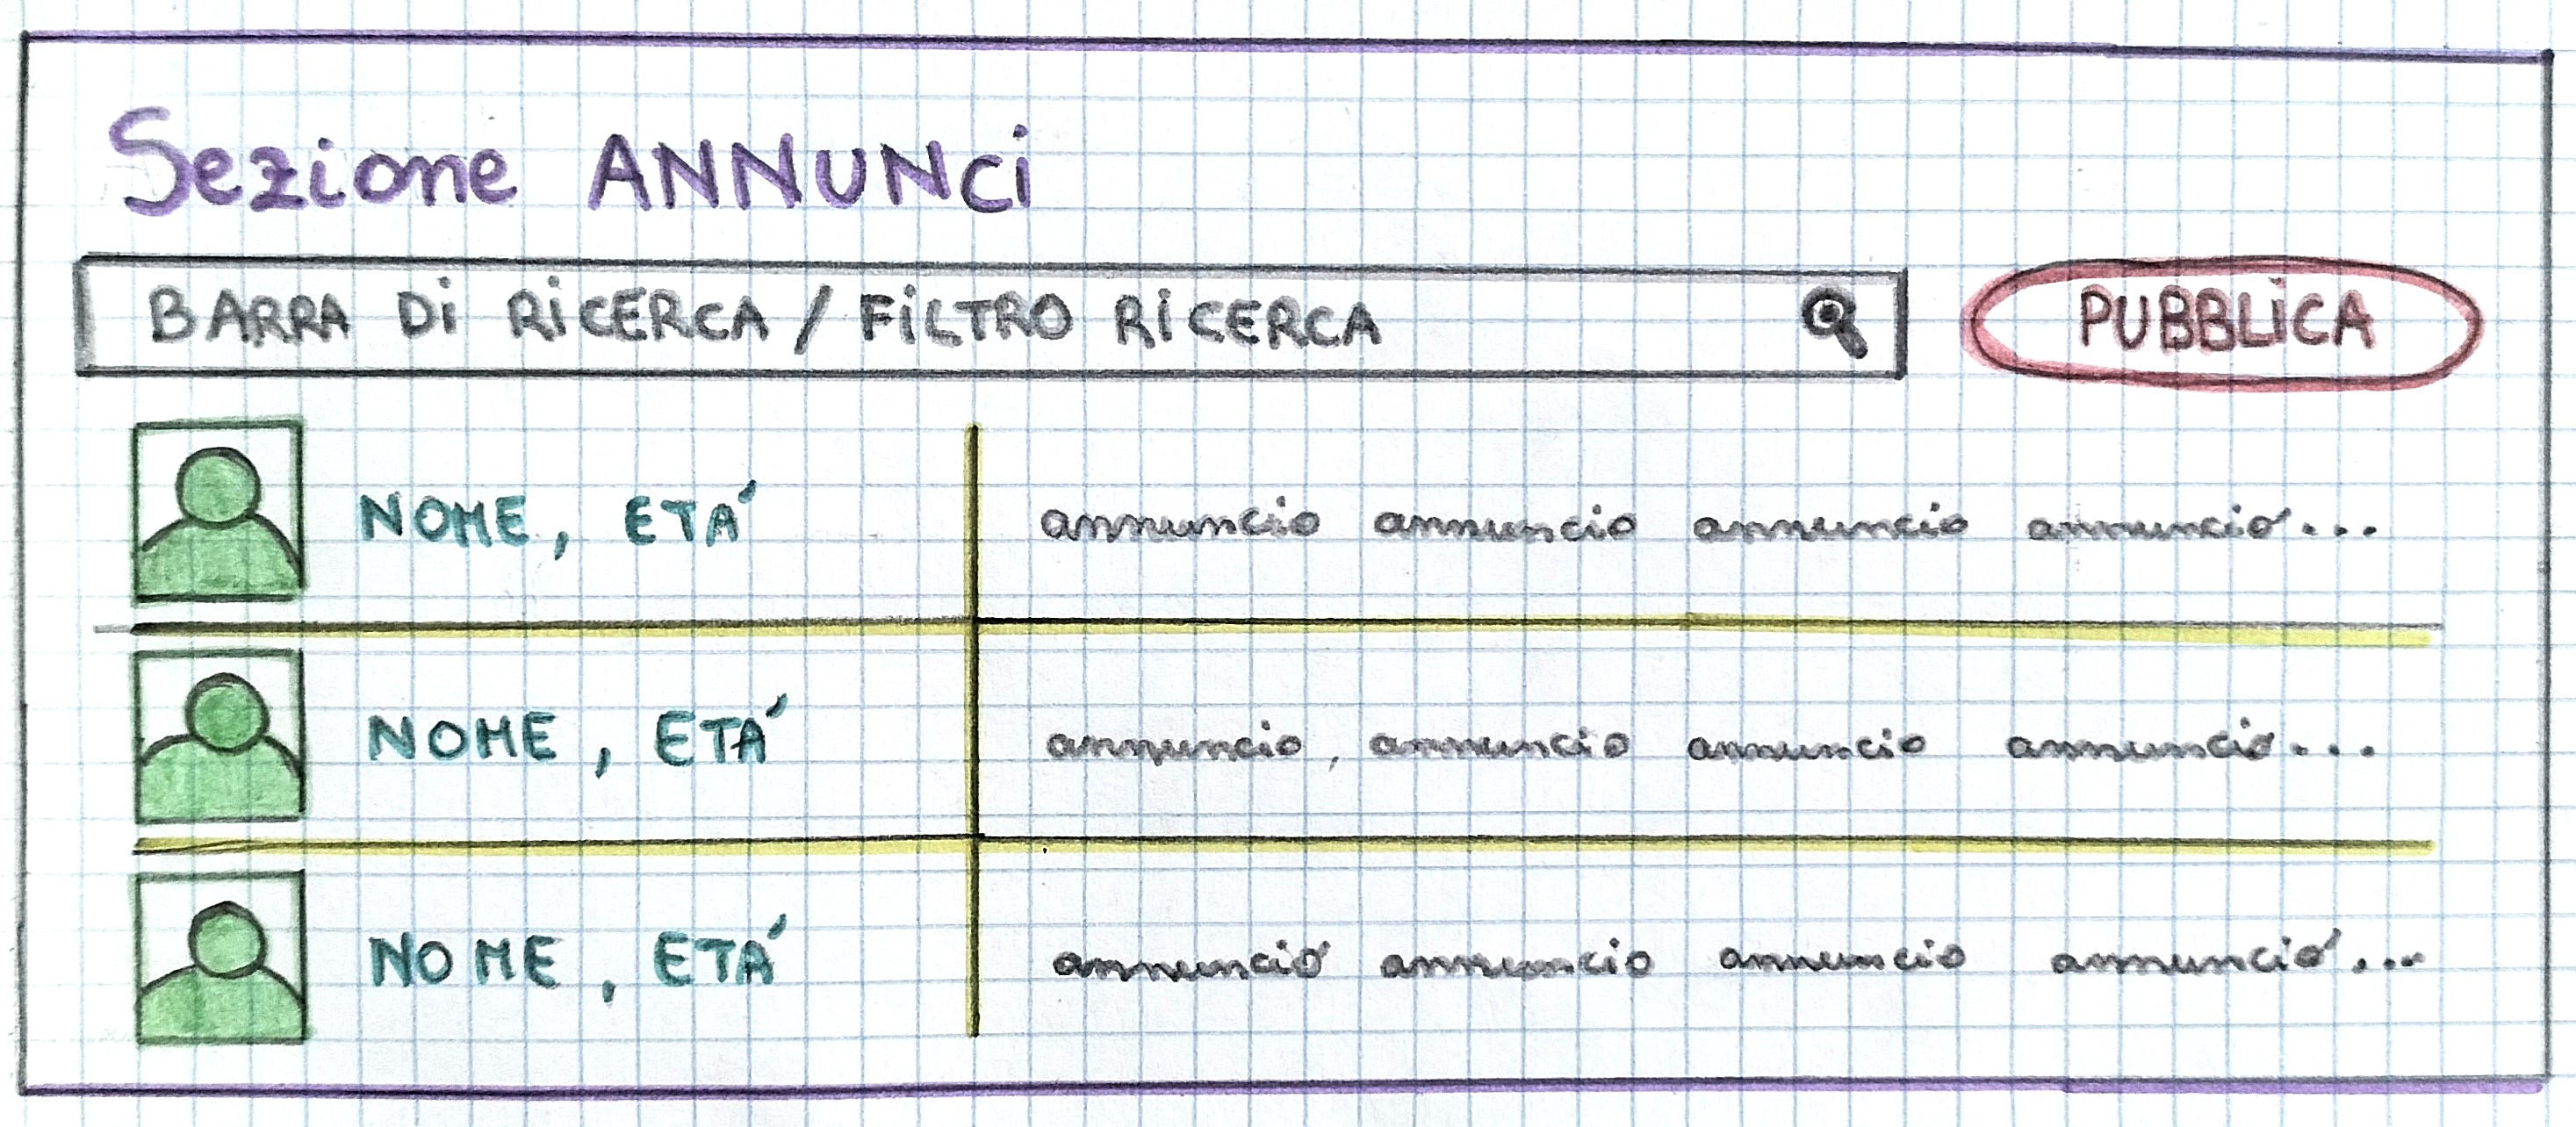 Sezione ANNUNCi
BARRA Di RiCERCA / FiLTRO RiCERCA
PUBBLiCA
NOME, ETÁ
annuncio annuncio annuncio annuncio...
NOME, ETÁ
annuncio, annuncio annuncio annuncio...
NOME, ETÁ
annuncio annuncio annuncio annuncio...